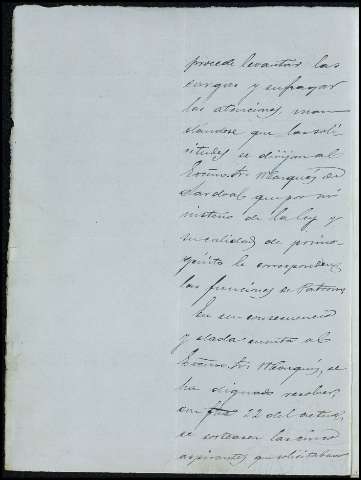 procede levantar las
cargas y sufragar
las atenciones, man
dandose que las soli-
citudes se dirijan al
Excmo. Sr. Marqués de
Sardoal que por mi
nisterio de la ley y
su calidad de primo-
génito le corresponden
las funciones de Patrono,
En su consecuencia
y dada cuenta al
Excmo. Sr. Marqués, se
ha dignado resolver,
con 22 del actual,
se sorteasen las cinco
aspirantes que solicitaban